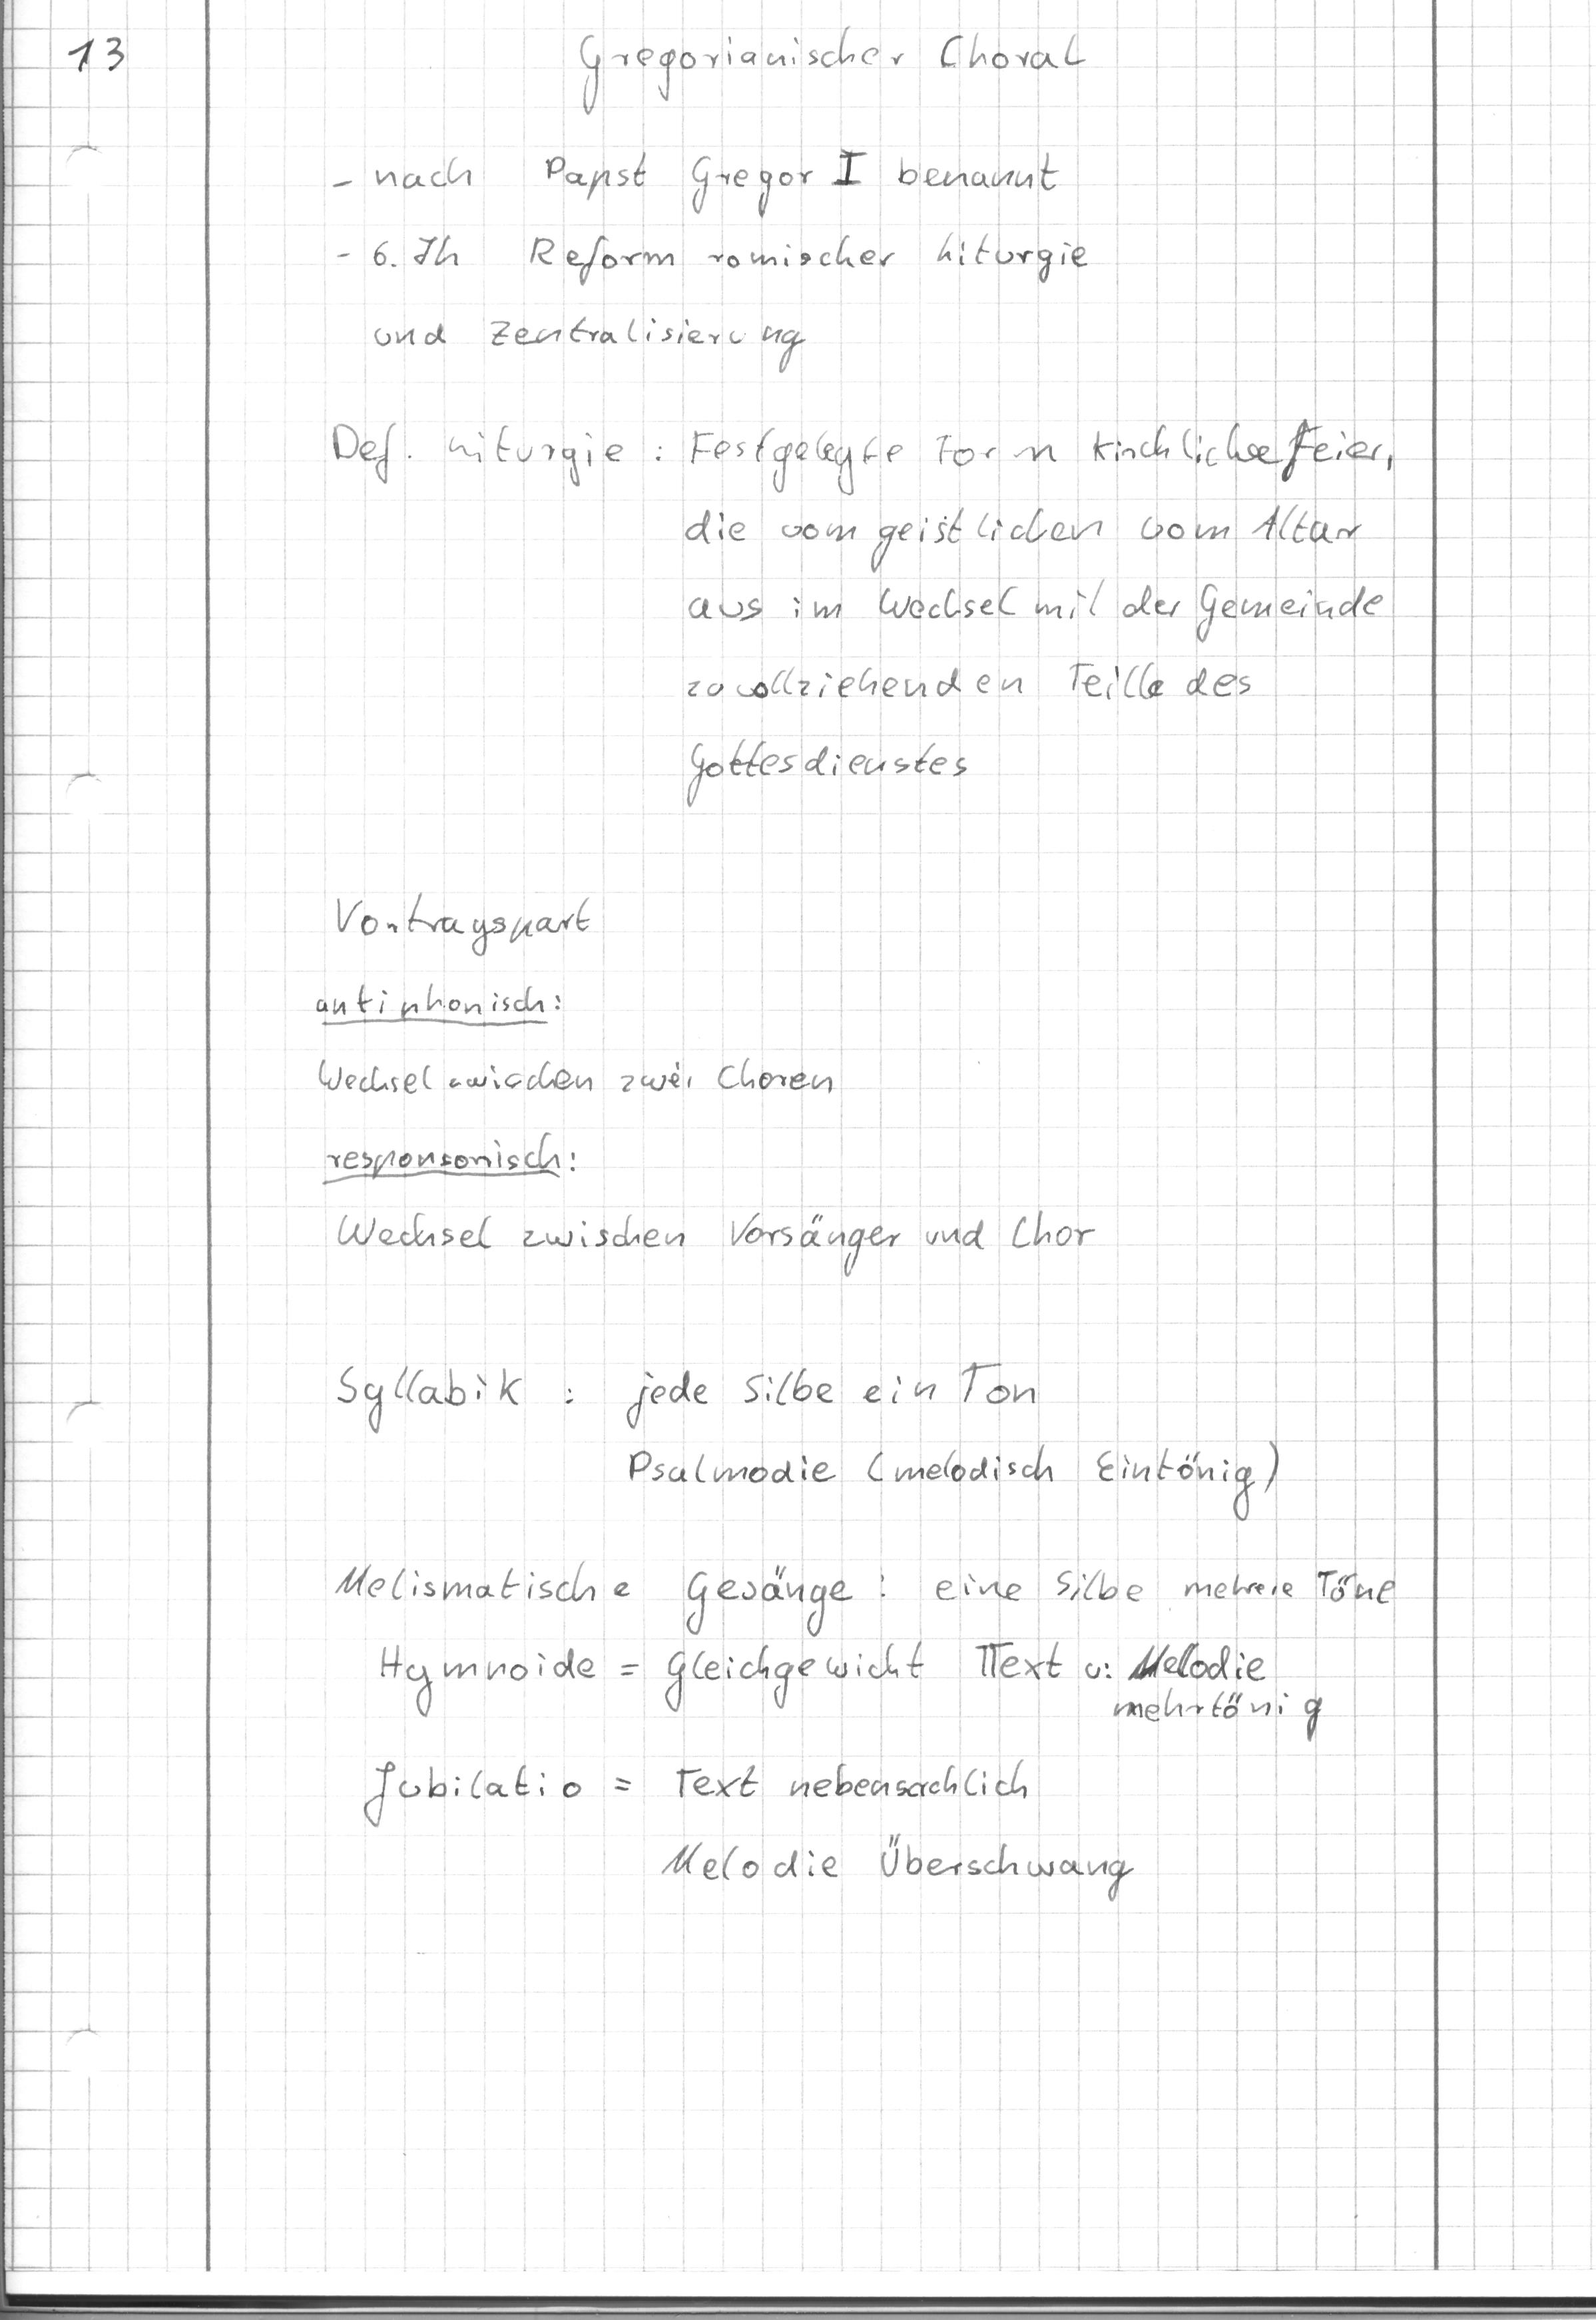 13
Gregorianischer Choral
- nach Papst Gregor I benannt
- 6. Jh Reform romischer Liturgie
und Zentralisierung
Def. Liturgie : Festgelegte Form kirchliche Feier,
die vom geistlichen vom Altar
aus im Wechsel mit der Gemeinde
zu vollziehenden Teille des
Gottesdienstes
Vortragspart
antiphonisch:
Wechsel zwischen zwei Choren
responsorisch:
Wechsel zwischen Vorsänger und Chor
Syllabik : jede Silbe ein Ton
Psalmodie (melodisch Eintönig)
Melismatische Gesänge : eine Silbe mehrere Töne
Hymnoide = Gleichgewicht Text u. Melodie
mehrtönig
Jubilatio = Text nebensächlich
Melodie Überschwang